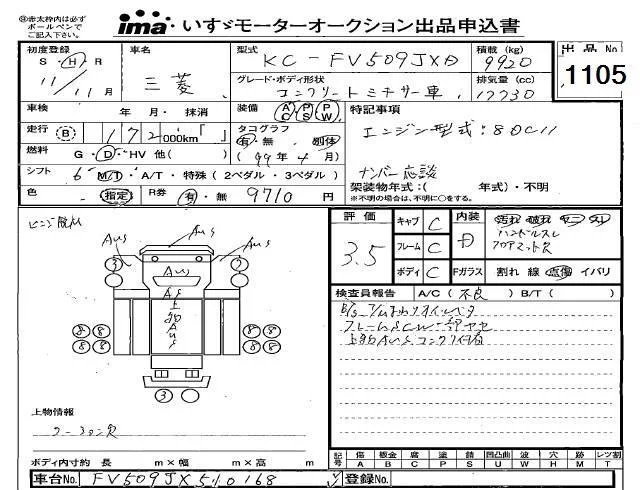 ㊟赤太枠内は必ず
ボールペンで
ご記入下さい。
ima・いすゞモーターオークション出品申込書
初度登録 車名 型式 積載(kg) 出品No
S・H・R 三菱 KC-FV509JXD 9920 1105
11/11月 グレード・ボディ形状 排気量(cc)
コンクリートミキサー車 12730
車検 年 月・抹消 装備 AC PS PW 特記事項
走行 B 172,000km「 」 タコグラフ エンジン型式:8DC11
有・無 別体
燃料 G・D・HV 他( ) (99年4月)
シフト 6 M/T・A/T・特殊(2ペダル・3ペダル) ナンバー応談
架装物年式:( 年式)・不明
色 指定 R券 有・無 9710円 ※不明の場合は、不明に○をする。
ヒンジ脱れ 評価 キャブ C 内装 汚れ 破れ ヤニ スレ
AUS AUS 3.5 フレーム C D ハンドルスレ
3 2 AUS フロアマット欠
ボディ C Fガラス 割れ 線 点傷 イバリ
上物AUS 検査員報告 A/C(不良) B/T( )
8 8 8 8
8 8 8 8
上物AUS コンクリ付着
3
上物情報
ボディ内寸約 長 m×幅 m×高 m
記号 傷 鈑金 腐 塗 錆 凹凸曲 波 穴 跡 レツ割
A B C P S U W H M T
車台No. FV509JX510168 登録No.